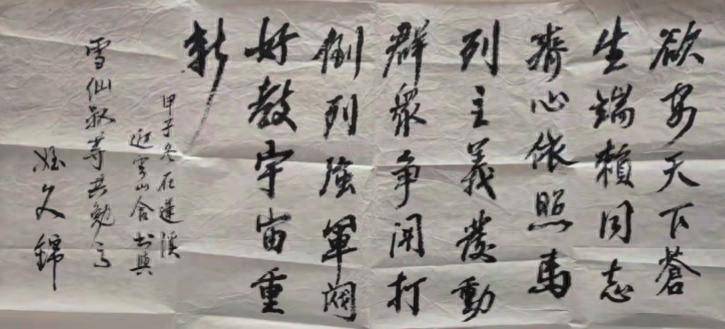 欲安天下蒼
生端賴同志
齊心依照馬
列主義發動
群眾爭開打
倒列強軍閥
好教宇宙重
新
甲子冬在蓬溪
逛雲山舍書與
雪仙叔等共勉之
姪久錦